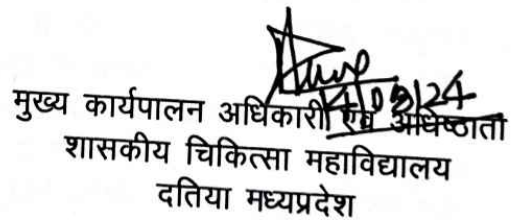 14/03/24
मुख्य कार्यपालन अधिकारी एवं अधिष्ठाता
शासकीय चिकित्सा महाविद्यालय
दतिया मध्यप्रदेश